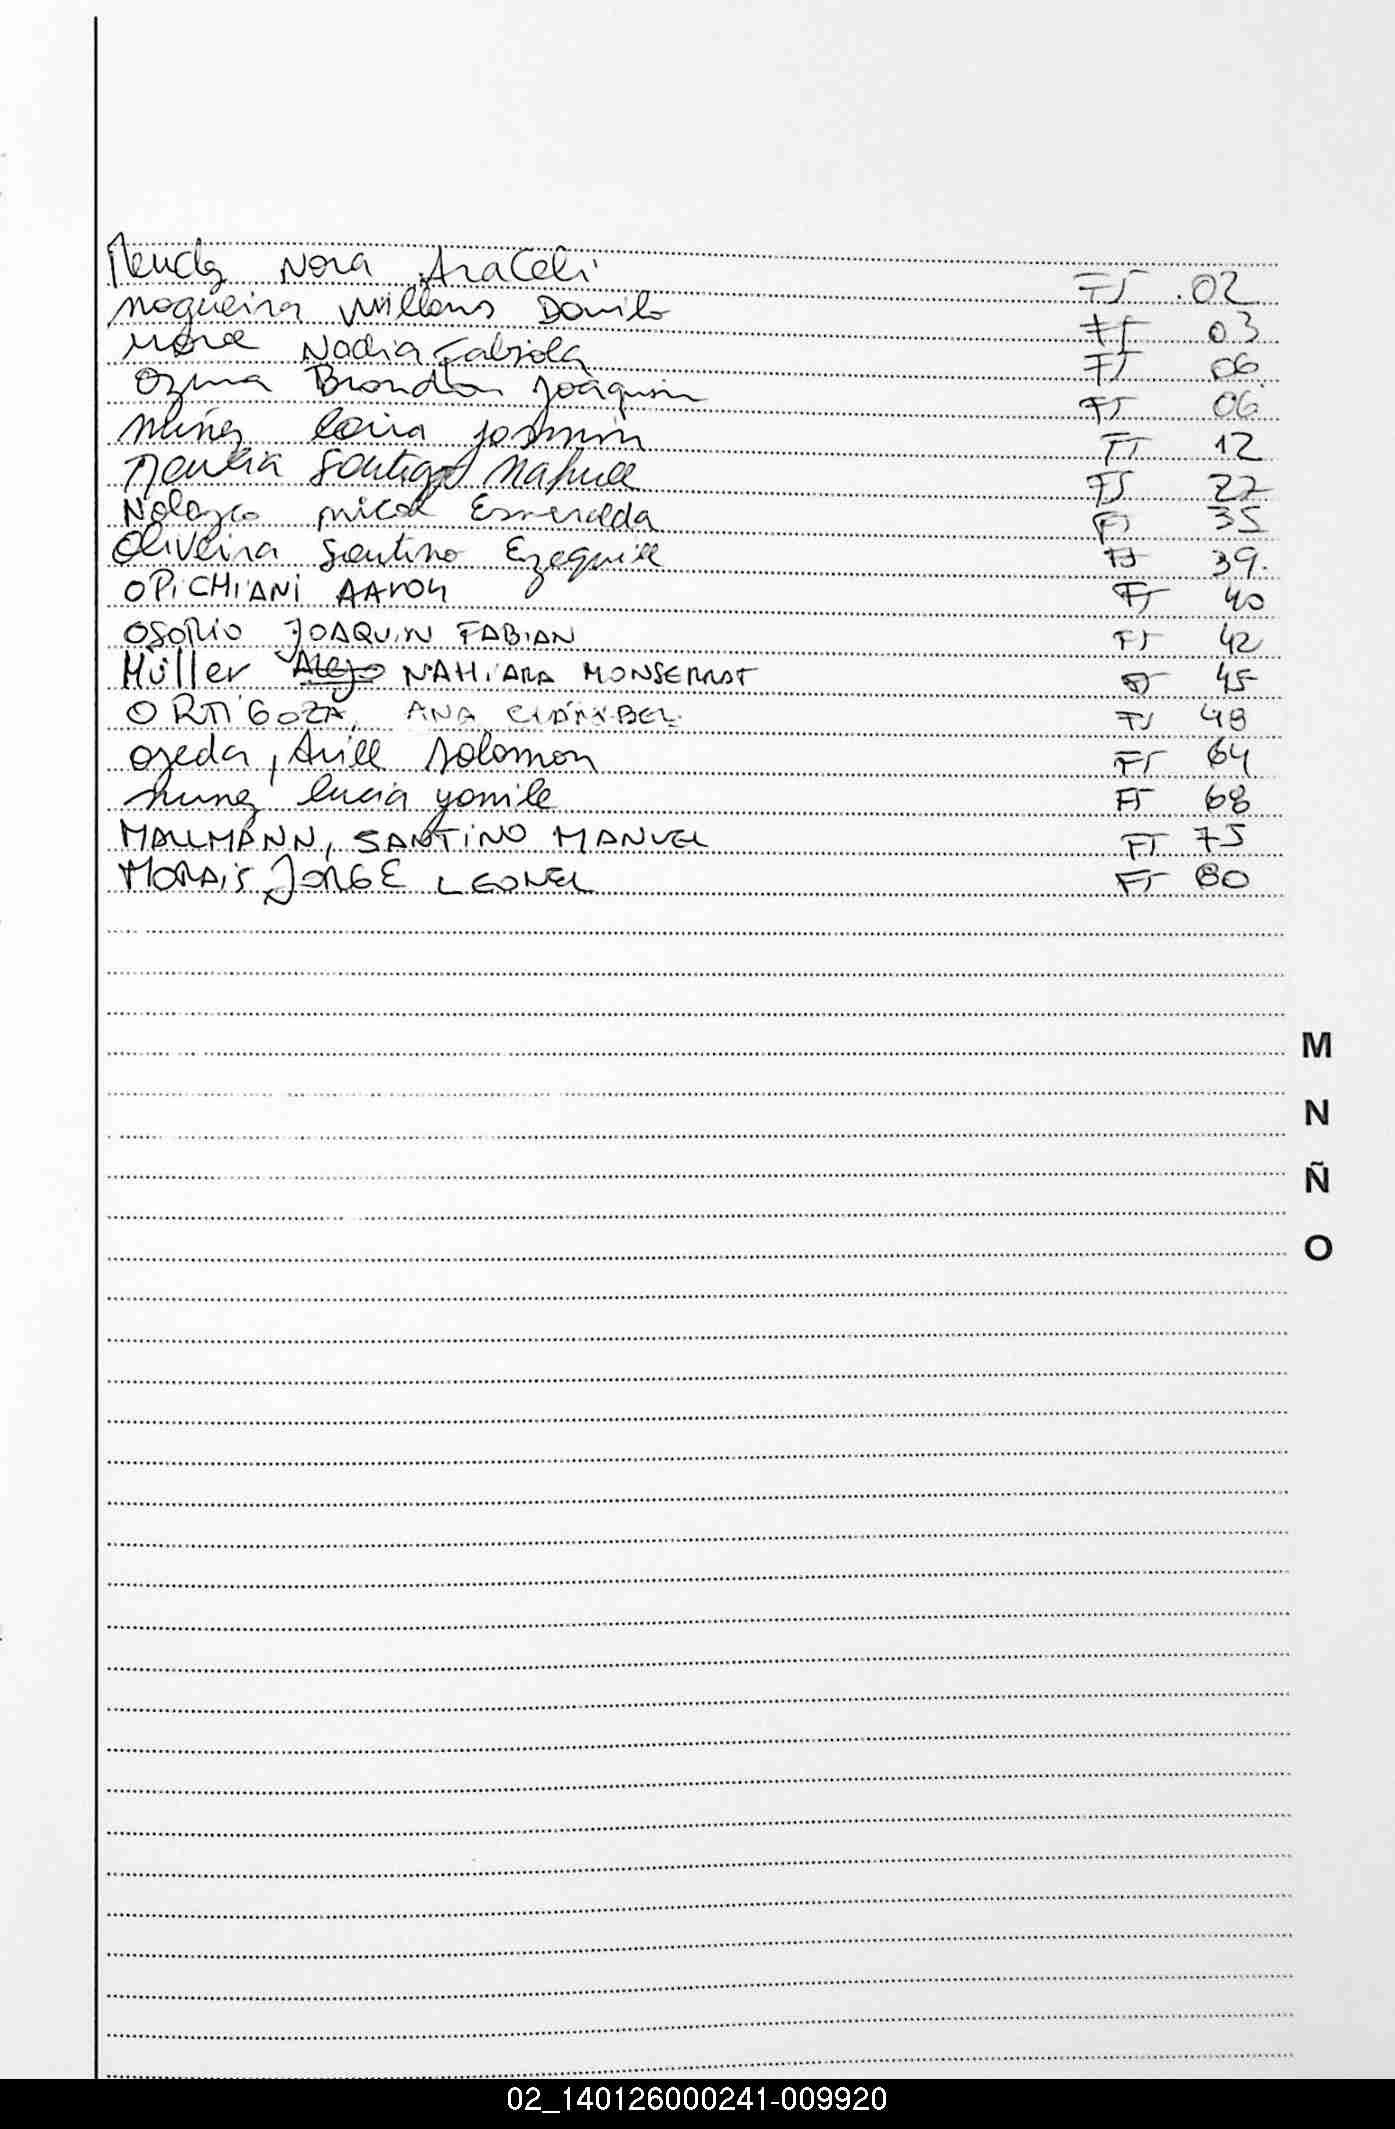 Nora Araceli FJ 02
Nogueira Willians Danilo FJ 03
Nadia Fabiola FJ 06
Ozuna Brandon Joaquin FJ 06
Nuñez Jasmin FJ 12
Santiago Nahuel FJ 27
Nolazco Micol Esmeralda FJ 35
Oliveira Santino Ezequiel FJ 39.
OPICHIANI AARON FJ 40
OSORIO JOAQUIN FABIAN FJ 42
Müller Alejo NAHIARA MONSERRAT FJ 45
ORTIGOZA, ANA FJ 48
Ojeda, Solomon FJ 64
Nunez Lucia Yamile FJ 68
MALLMANN, SANTINO MANUEL FJ 75
MORAIS JORGE LEONEL FJ 80
M
N
Ñ
O
02_140126000241-009920